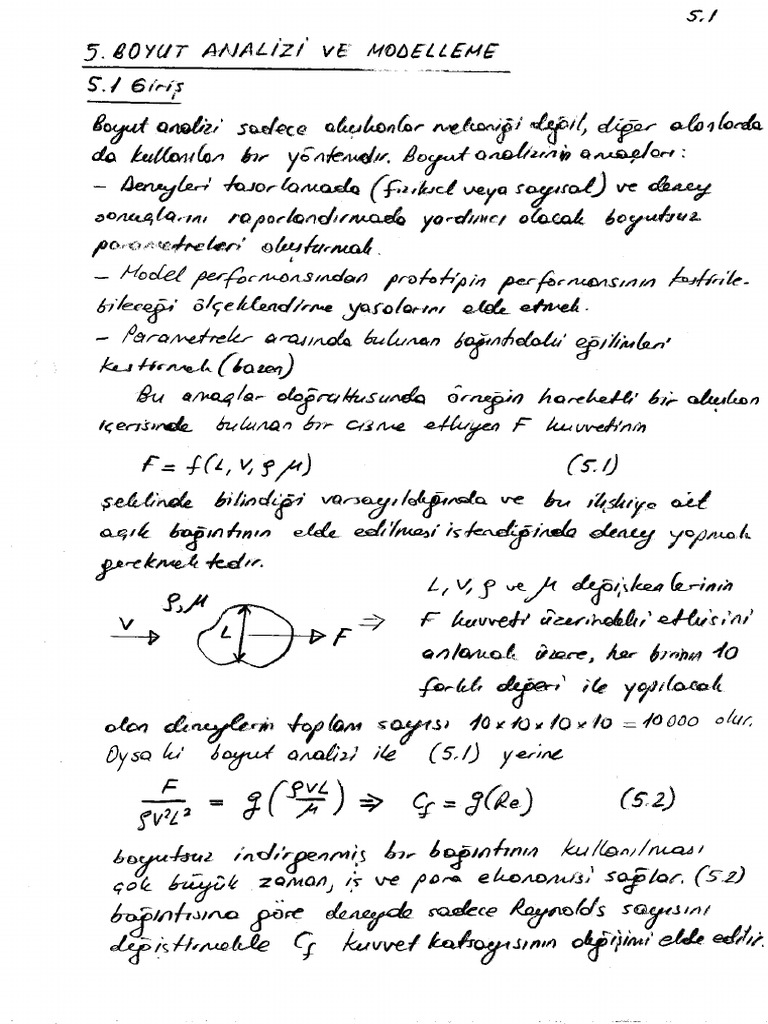 5.1
5. BOYUT ANALİZİ VE MODELLEME
5.1 Giriş
Boyut analizi sadece akışkanlar mekaniği değil, diğer alanlarda
da kullanılan bir yöntemdir. Boyut analizinin amaçları:
- Deneyleri tasarlamada (fiziksel veya sayısal) ve deney
sonuçlarını raporlandırmada yardımcı olacak boyutsuz
parametreleri oluşturmak.
- Model performansından prototipin performansının kestirile-
bileceği ölçeklendirme yasalarını elde etmek.
- Parametreler arasında bulunan bağıntıdaki eğilimleri
kestirmek (bazen)
Bu amaçlar doğrultusunda örneğin hareketli bir akışkan
içerisinde bulunan bir cisme etkiyen F kuvvetinin
F = f(L, V, ρ μ) (5.1)
şeklinde bilindiği varsayıldığında ve bu ilişkiye ait
açık bağıntının elde edilmesi istendiğinde deney yapmak
gerekmektedir.
V ρ, μ L F ⇒
L, V, ρ ve μ değişkenlerinin
F kuvveti üzerindeki etkisini
anlamak üzere, her birinin 10
farklı değeri ile yapılacak
olan deneylerin toplam sayısı 10×10×10×10 = 10000 olur.
Oysa ki boyut analizi ile (5.1) yerine
F/ρV²L² = g(ρVL/μ) ⇒ C_f = g(Re) (5.2)
boyutsuz indirgenmiş bir bağıntının kullanılması
çok büyük zaman, iş ve para ekonomisi sağlar. (5.2)
bağıntısına göre deneyde sadece Reynolds sayısını
değiştirmekle C_f kuvvet katsayısının değişimi elde edilir.